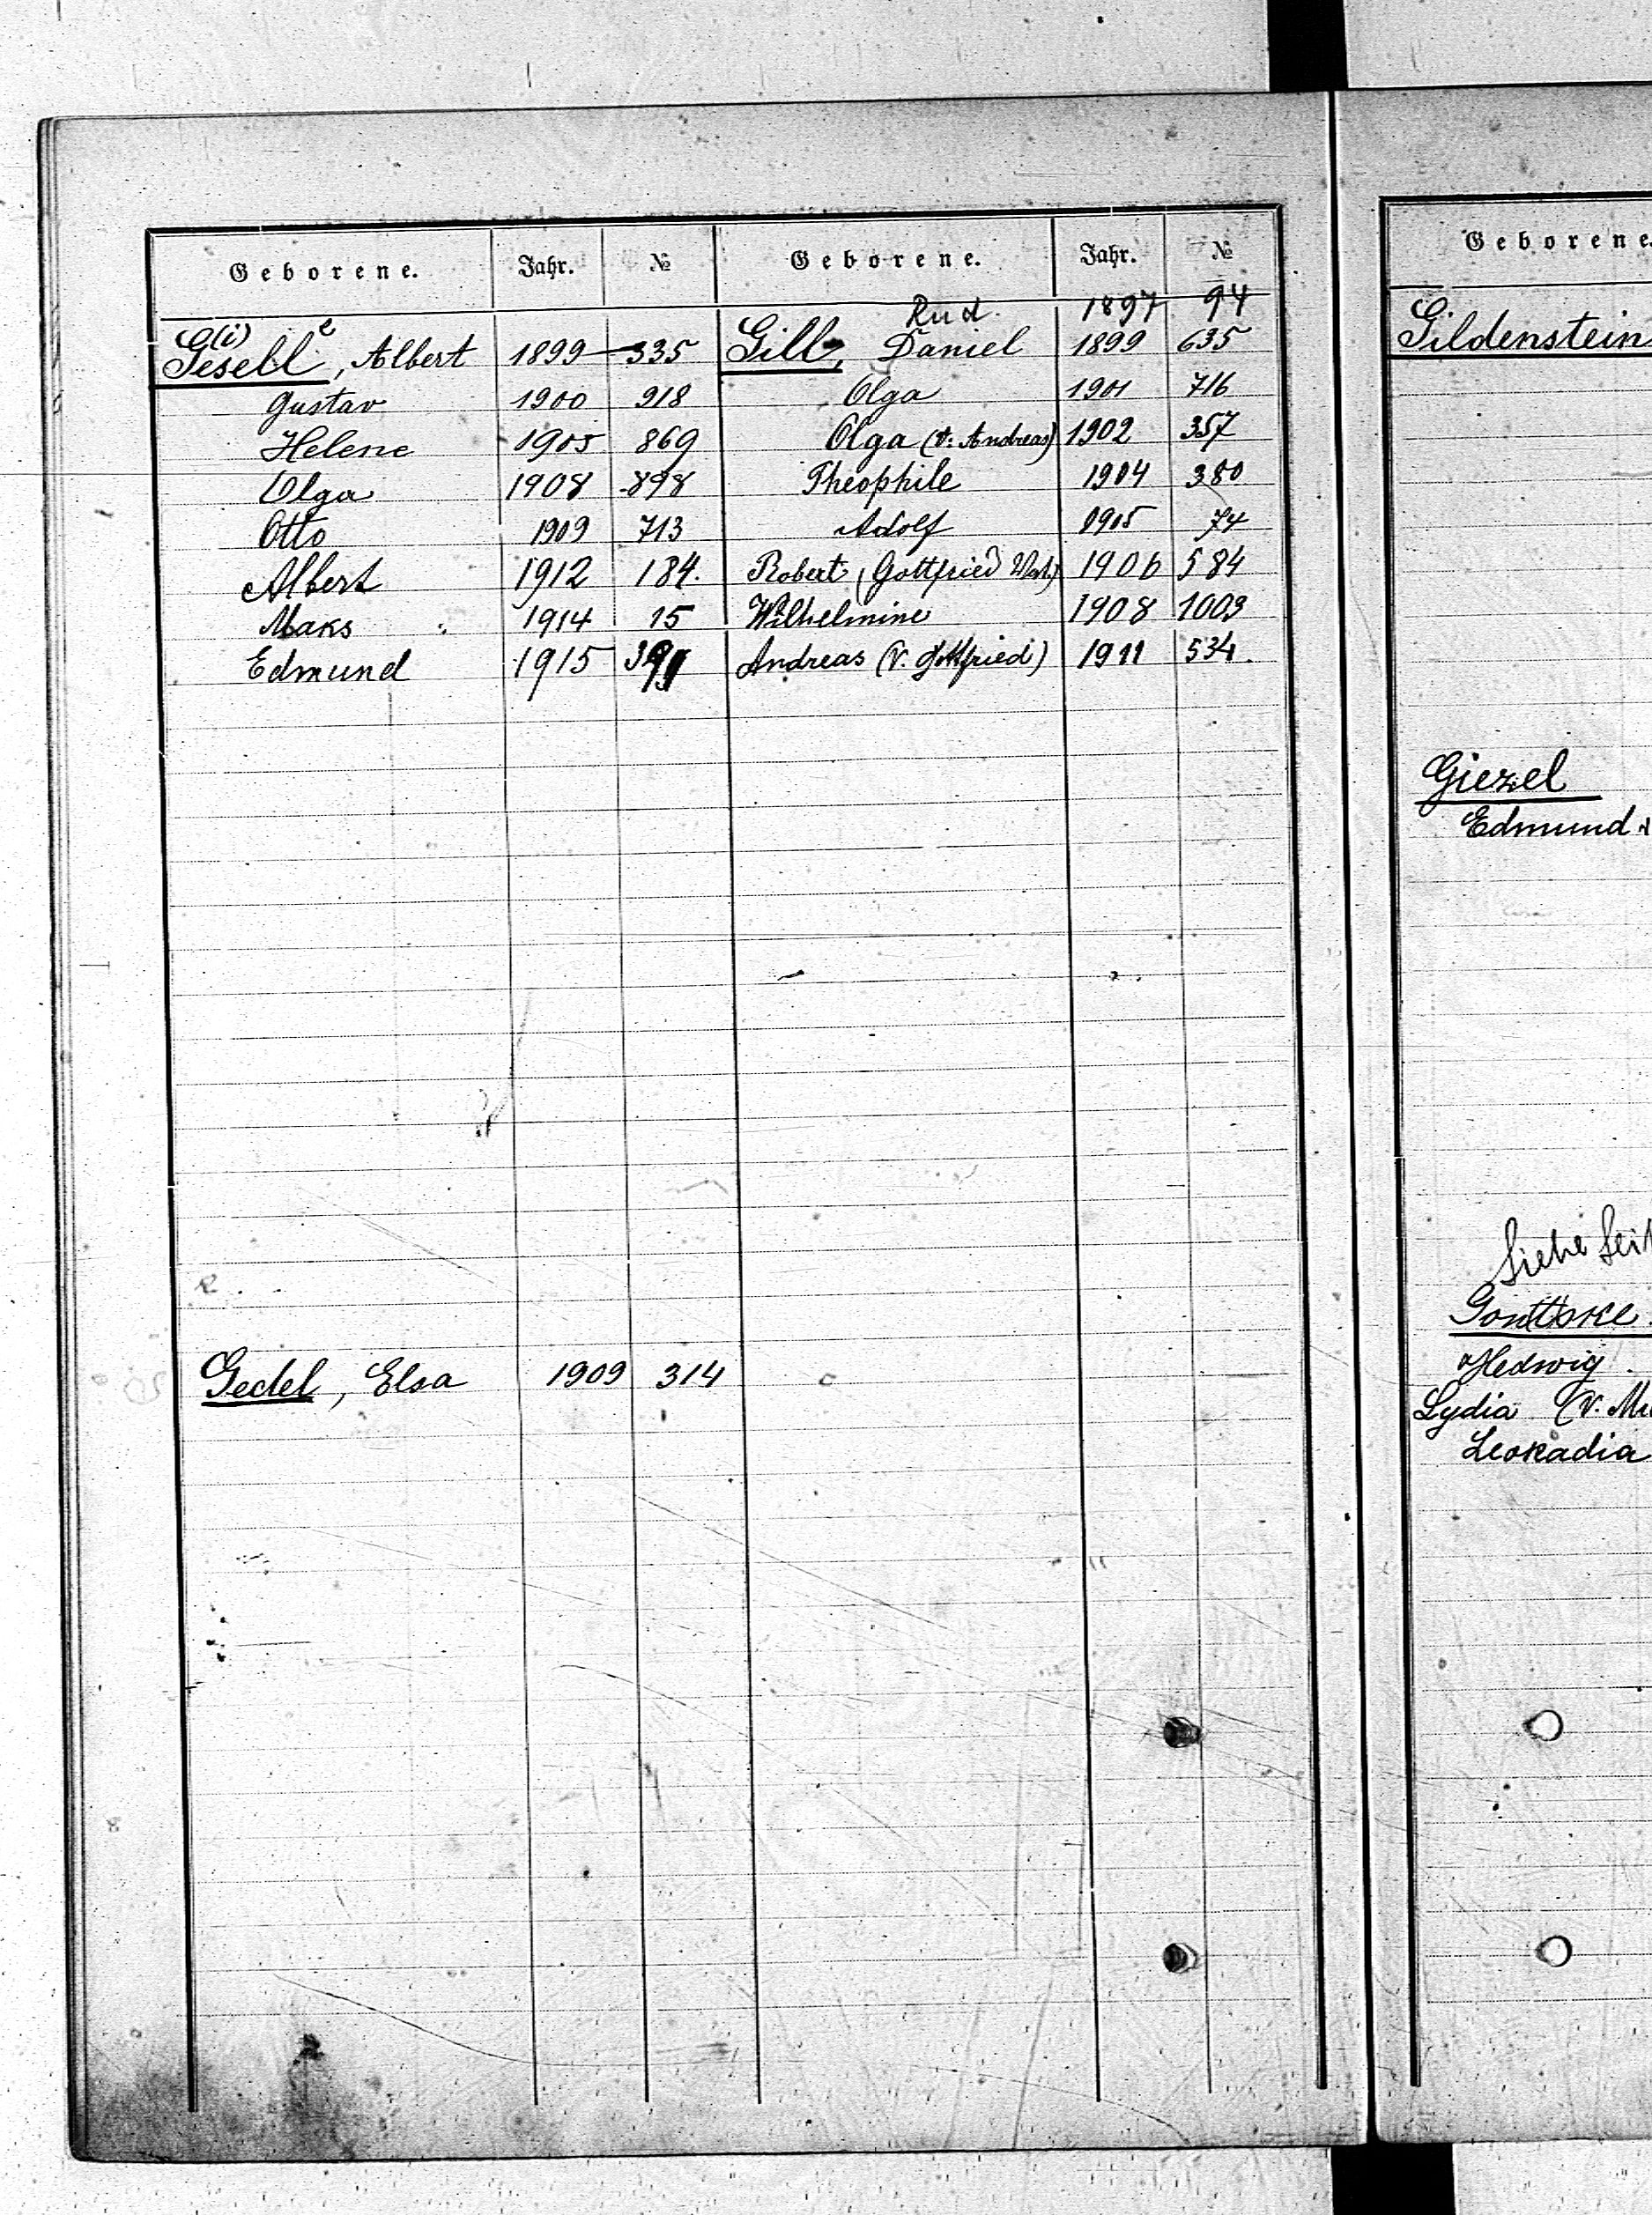 Geborene. Jahr. №
G(i)esell e, Albert 1899 335
Gustav 1900 918
Helene 1905 869
Olga 1908 898
Otto 1909 713
Albert 1912 184.
Maks 1914 15
Edmund 1915
Gedel, Elsa 1909 314
Geborene. Jahr. №
Rud. 1897 94
Gill, Daniel 1899 635
Olga 1901 716
Olga (V. Andreas) 1902 357
Theophile 1904 380
Adolf 1905 74
Robert (Gottfried Vat.) 1906 584
Wilhelmine 1908 1003
Andreas (V. Gottfried) 1911 534.
Geborene.
Gildenstein
Giezel
Edmund
Siehe Seit
Hedwig
Lydia (V.
Leokadia